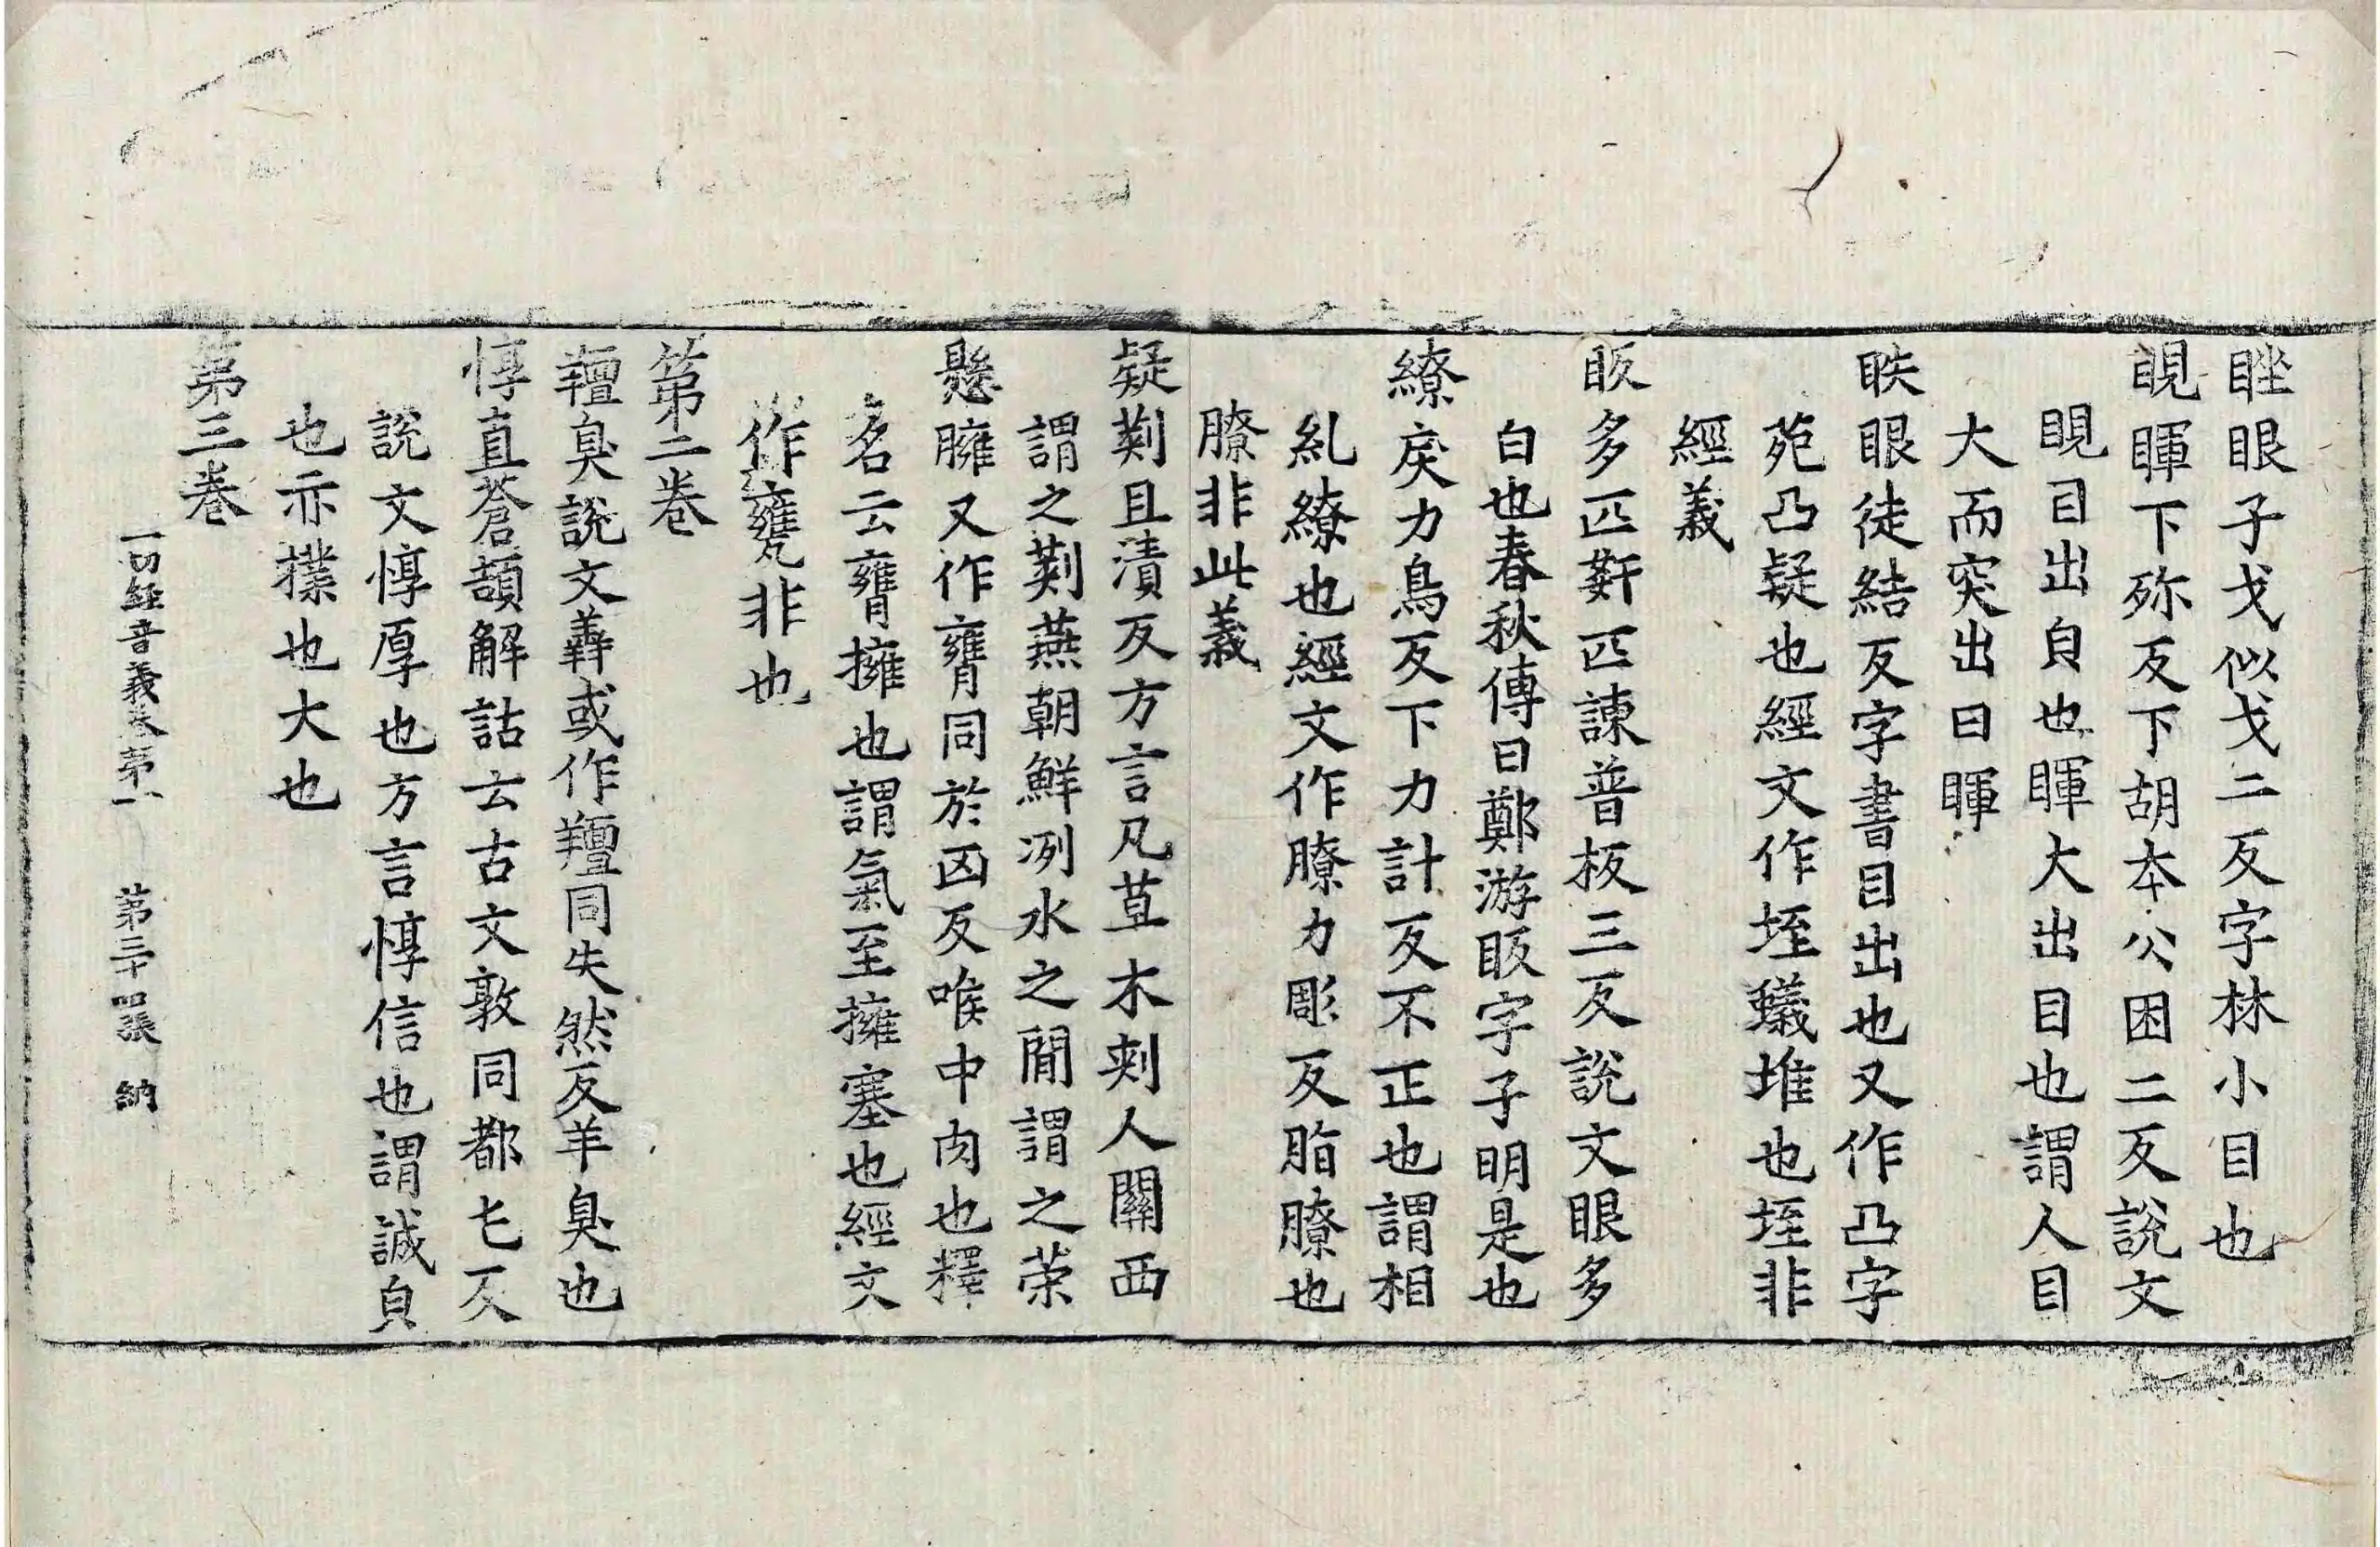 睉眼子戈似戈二反字林小目也
睍睴下殄反下胡本公困二反說文
睍目出皃也睴大出目也謂人目
大而突出曰睴
眣眼徒結反字書目出也又作凸字
苑凸疑也經文作垤蟻堆也垤非
經義
眅多匹姧匹諫普板三反說文眼多
白也春秋傳曰鄭游眅字子明是也
繚戾力鳥反下力計反不正也謂相
糺繚也經文作膫力彫反脂膫也
膫非此義
疑䓶且漬反方言凡草木刾人關西
謂之䓶燕朝鮮洌水之間謂之茦
懸臃又作癰同於凶反喉中肉也釋
名云癰擁也謂氣至擁塞也經文
作甕非也
第二卷
羶臭說文羴或作羶同失然反羊臭也
惇直蒼頡解詁云古文敦同都屯反
說文惇厚也方言惇信也謂誠皃
也亦撲也大也
第三卷
一切經音義卷第一 第三十四張 納